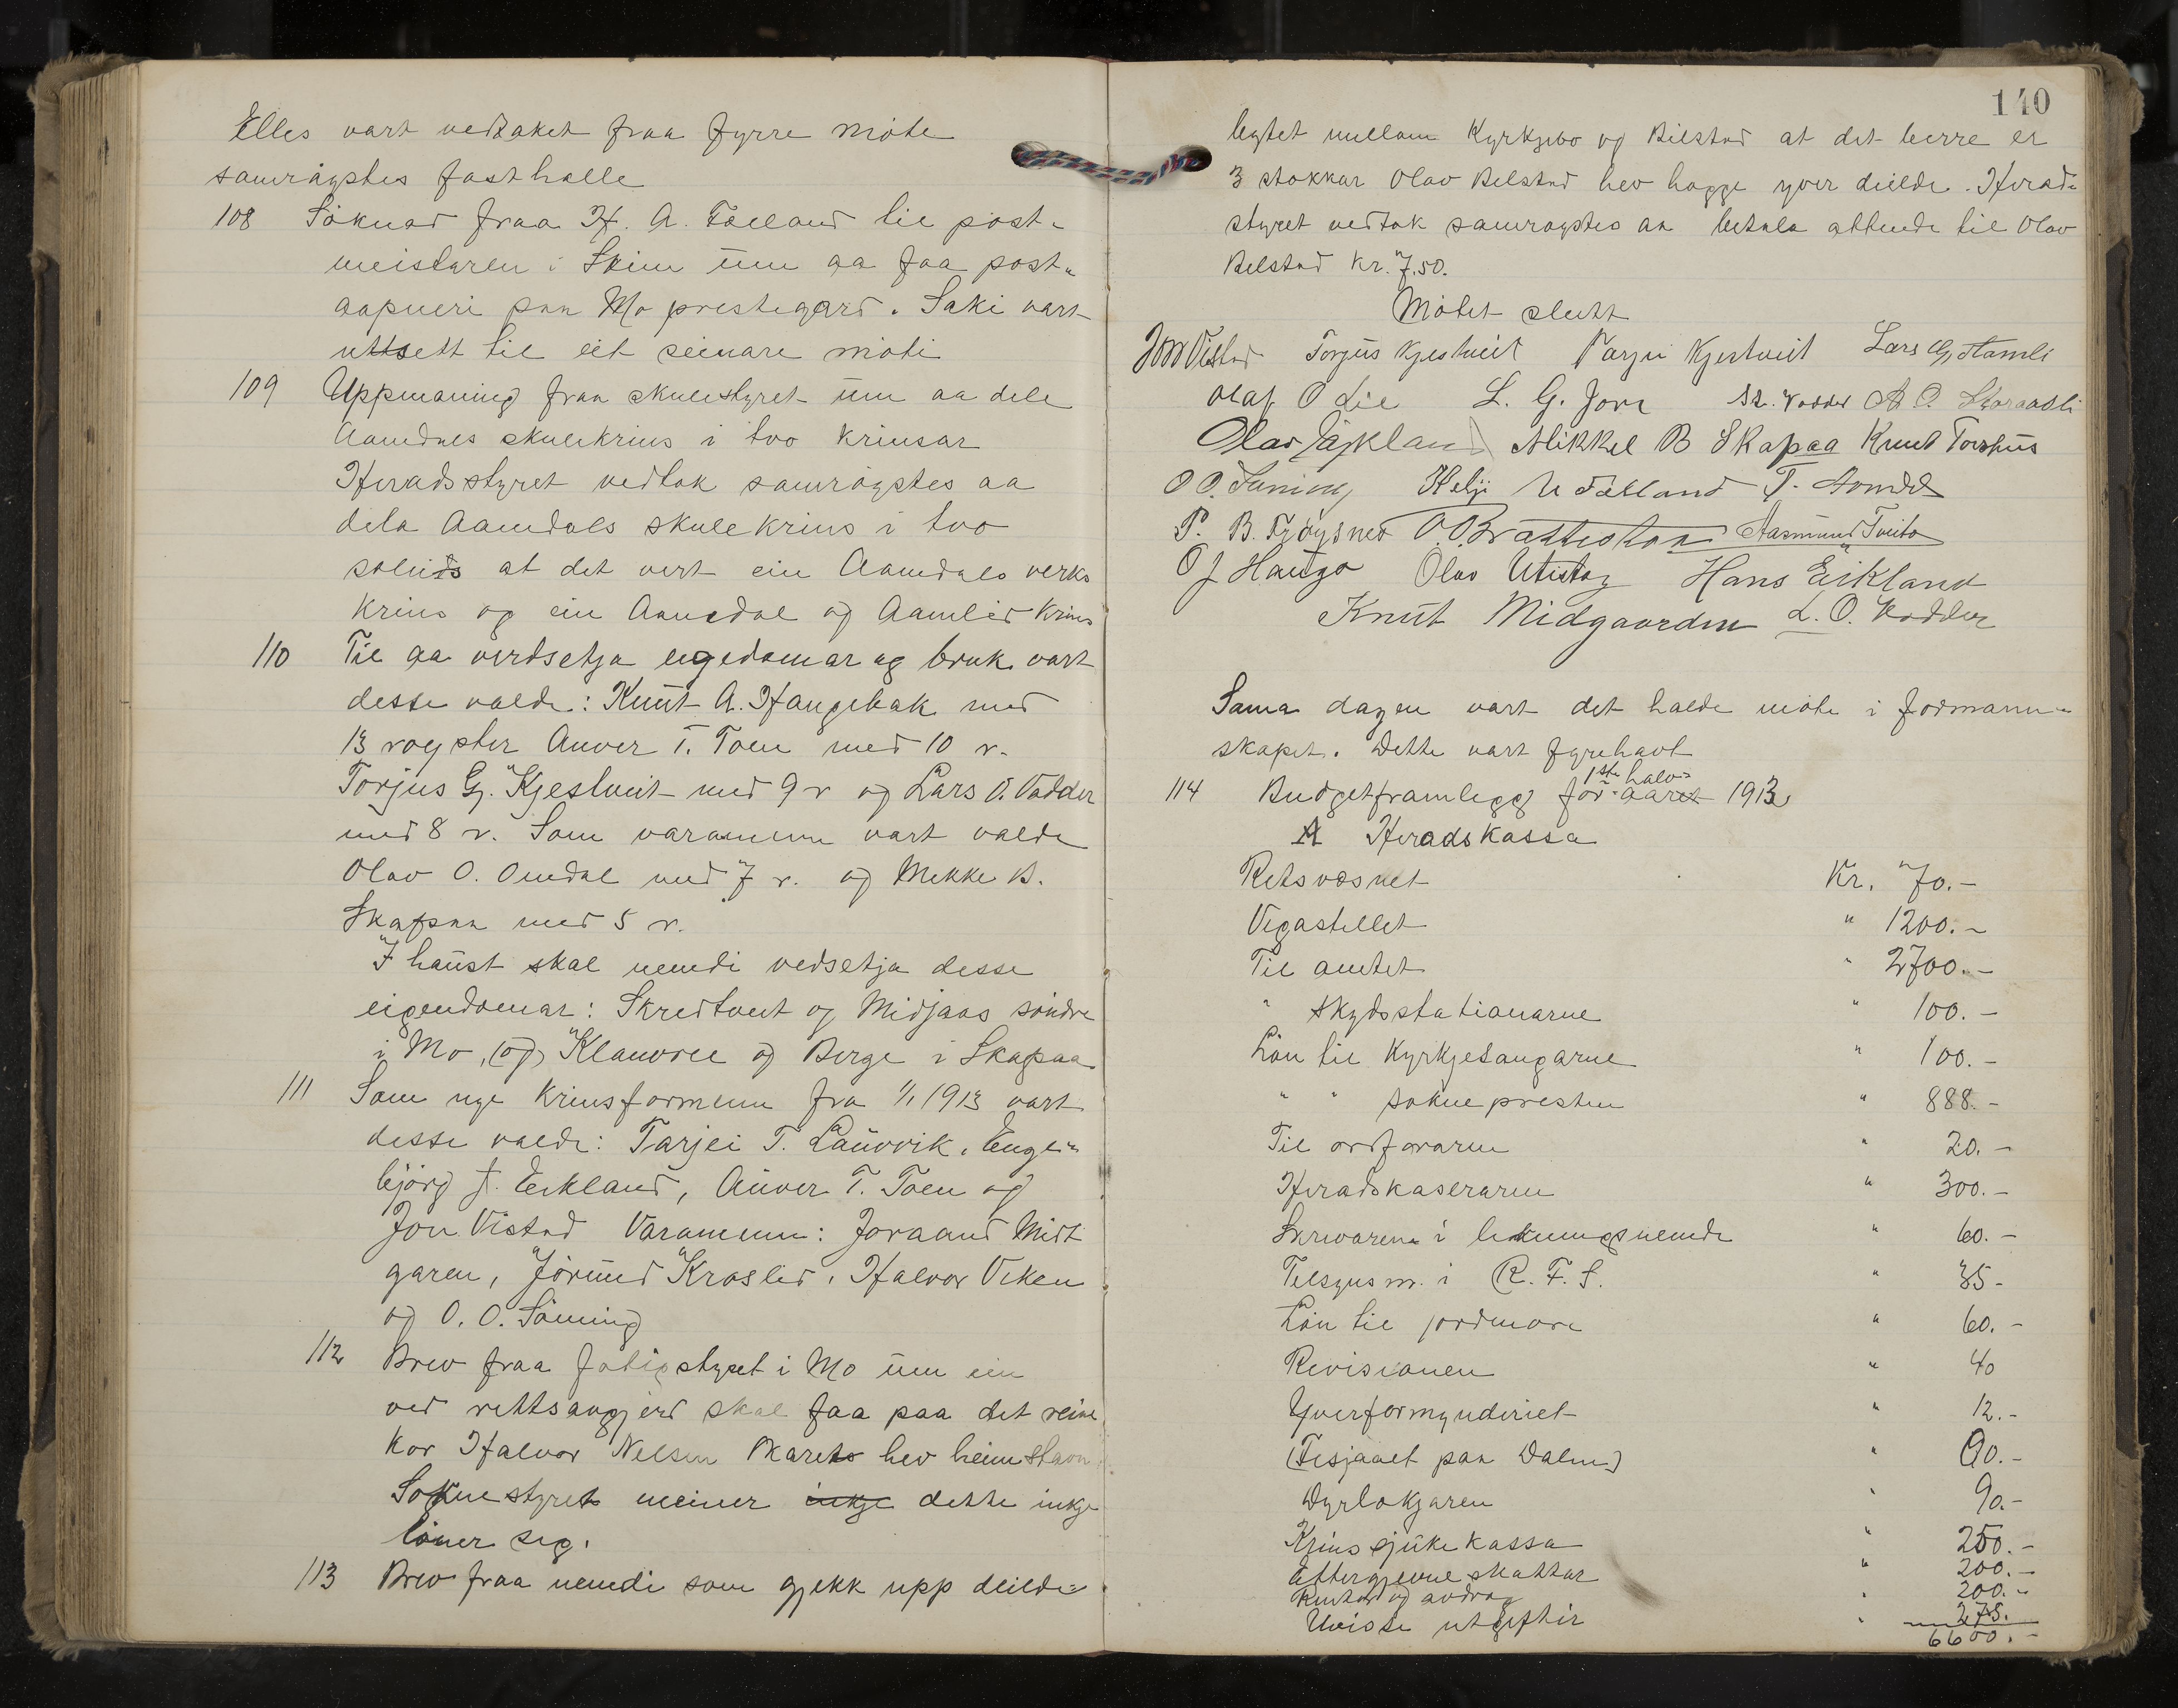 Elles vart vedtaket fraa fyrre möte
samröystes fasthalle
108 Söknad fraa H. A. Folland til post-
meistaren i Skien um aa faa post-
aapneri paa Mo prestegard. Saki vart
uttsett til eit seinare möti
109 Uppmaning fraa skulestyret um aa dele
Aamdals skulekrins i tvo krinsar
Heradsstyret vedtok samröystes aa
dela Aamdals skulekrins i tvo
soleids at det vert ein Aamdals verks
krins og ein Aamdal og Aamlid krins
110 Til aa verdsetja eigedomar og bruk vart
desse valde: Knut A. Haugebak med
13 röyster Anver T. Toen med 10 r.
Torjus G. Kjestveit med 9 r og Lars O. Vadder
med 8 r. Som varamenn vart valde
Olav O. Omdal med 7 r. og Mekke B.
Skapaa med 5 r.
I haust skal nemdi vedsetja desse
eigendomar: Skredtveit og Midjaas söndre
i Mo, (og) Klauvree og Berge i Skapaa
111 Som nye krinsformenn fra 1/1 1913 vart
desse valde: Tarjei T. Lauvvik, Enge-
björg J. Eikland, Anver T. Toen og
Jon Vistad Varamenn: Joraand Midt
garen, Jörund Kroslid, Halvor Viken
og O. O. Söming
112 Brev fraa fatigstyret i Mo um ein
ved rettsavgjerd skal faa paa det reine
kor Halvor Nelsen hev heimstavn
Soknestyret meiner inkje dette inkje
löner seg.
113 Brev fraa nemdi som gjekk upp deilde-
140
bytet millom Kyrkjebö og Bilstad at det berre er
3 stokkar Olav Belstad hev hogge yver deilde. Herads-
styret vedtok samröystes aa betala attende til Olav
Belstad kr. 7.50.
Mötet slutt
Jon Vistad Torjus Kjestveit Tarjei Kjestveit Lars G. Hamli
Olaf O Lie L. G. Jore Vadder A O. Skoraasli
Olav Öykland Mikkel B Skapaa Knut Torshus
O O. Söming Helje A Folland T. Aomdal
P. B. Fröysnes O. Brattestaa Aasmund Tveito
O J Haugo Olav Utistog Hans Eikland
Knut Midgaarden L. O. Vadder
Sama dagen vart det halde möte i formann-
skapet. Dette vart fyrehavt
1ste halv-
114 Budgetframlegg for aaret 1913
A Heradskassa
Retsvæsnet Kr. 70.-
Vegastellet " 1200.-
Til amtet " 2700.-
" skydsstationarne " 100.-
Lön til Kyrkjesongarne " 100.-
" " soknepresten " 888.-
Til ordföraren " 20.-
Heradskaseraren " 300.-
Skrivaren i likningsnemde " 60.-
Tilsynsm. i R. F. S. " 35-
Lön til jordmore " 60.-
Revisionen " 40
Yverformynderiet " 12.-
(Tesjaaet paa Dalen) " 90.-
Dyrlækjaren " 90.-
Krinssjukekassa " 250.-
Ettergjevne skattar " 200.-
Rentor og avdrag " 200.-
Uvisse utgiftir " 275.
6600.-